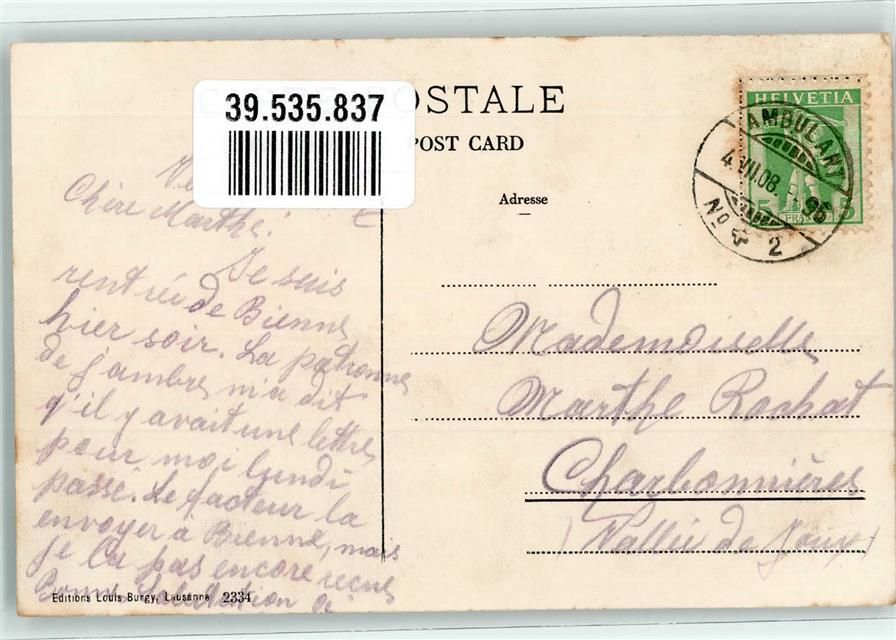 39.535.837
OSTALE
POST CARD
Adresse
HELVETIA
5 FRANCO 5
AMBULANT
4.VII.08
No 2
Chère Marthe!
Je suis
rentrée de Bienne
hier soir. La patronne
de m'a dit
q'il y avait une lettre
pour moi lundi
passé. Le facteur la
envoyer à Bienne, mais
je l'ai pas encore reçue
Bonne
Mademoiselle
Marthe Rochat
Charbonnières
(Vallée de Joux)
Editions Louis Burgy, Lausanne 2334